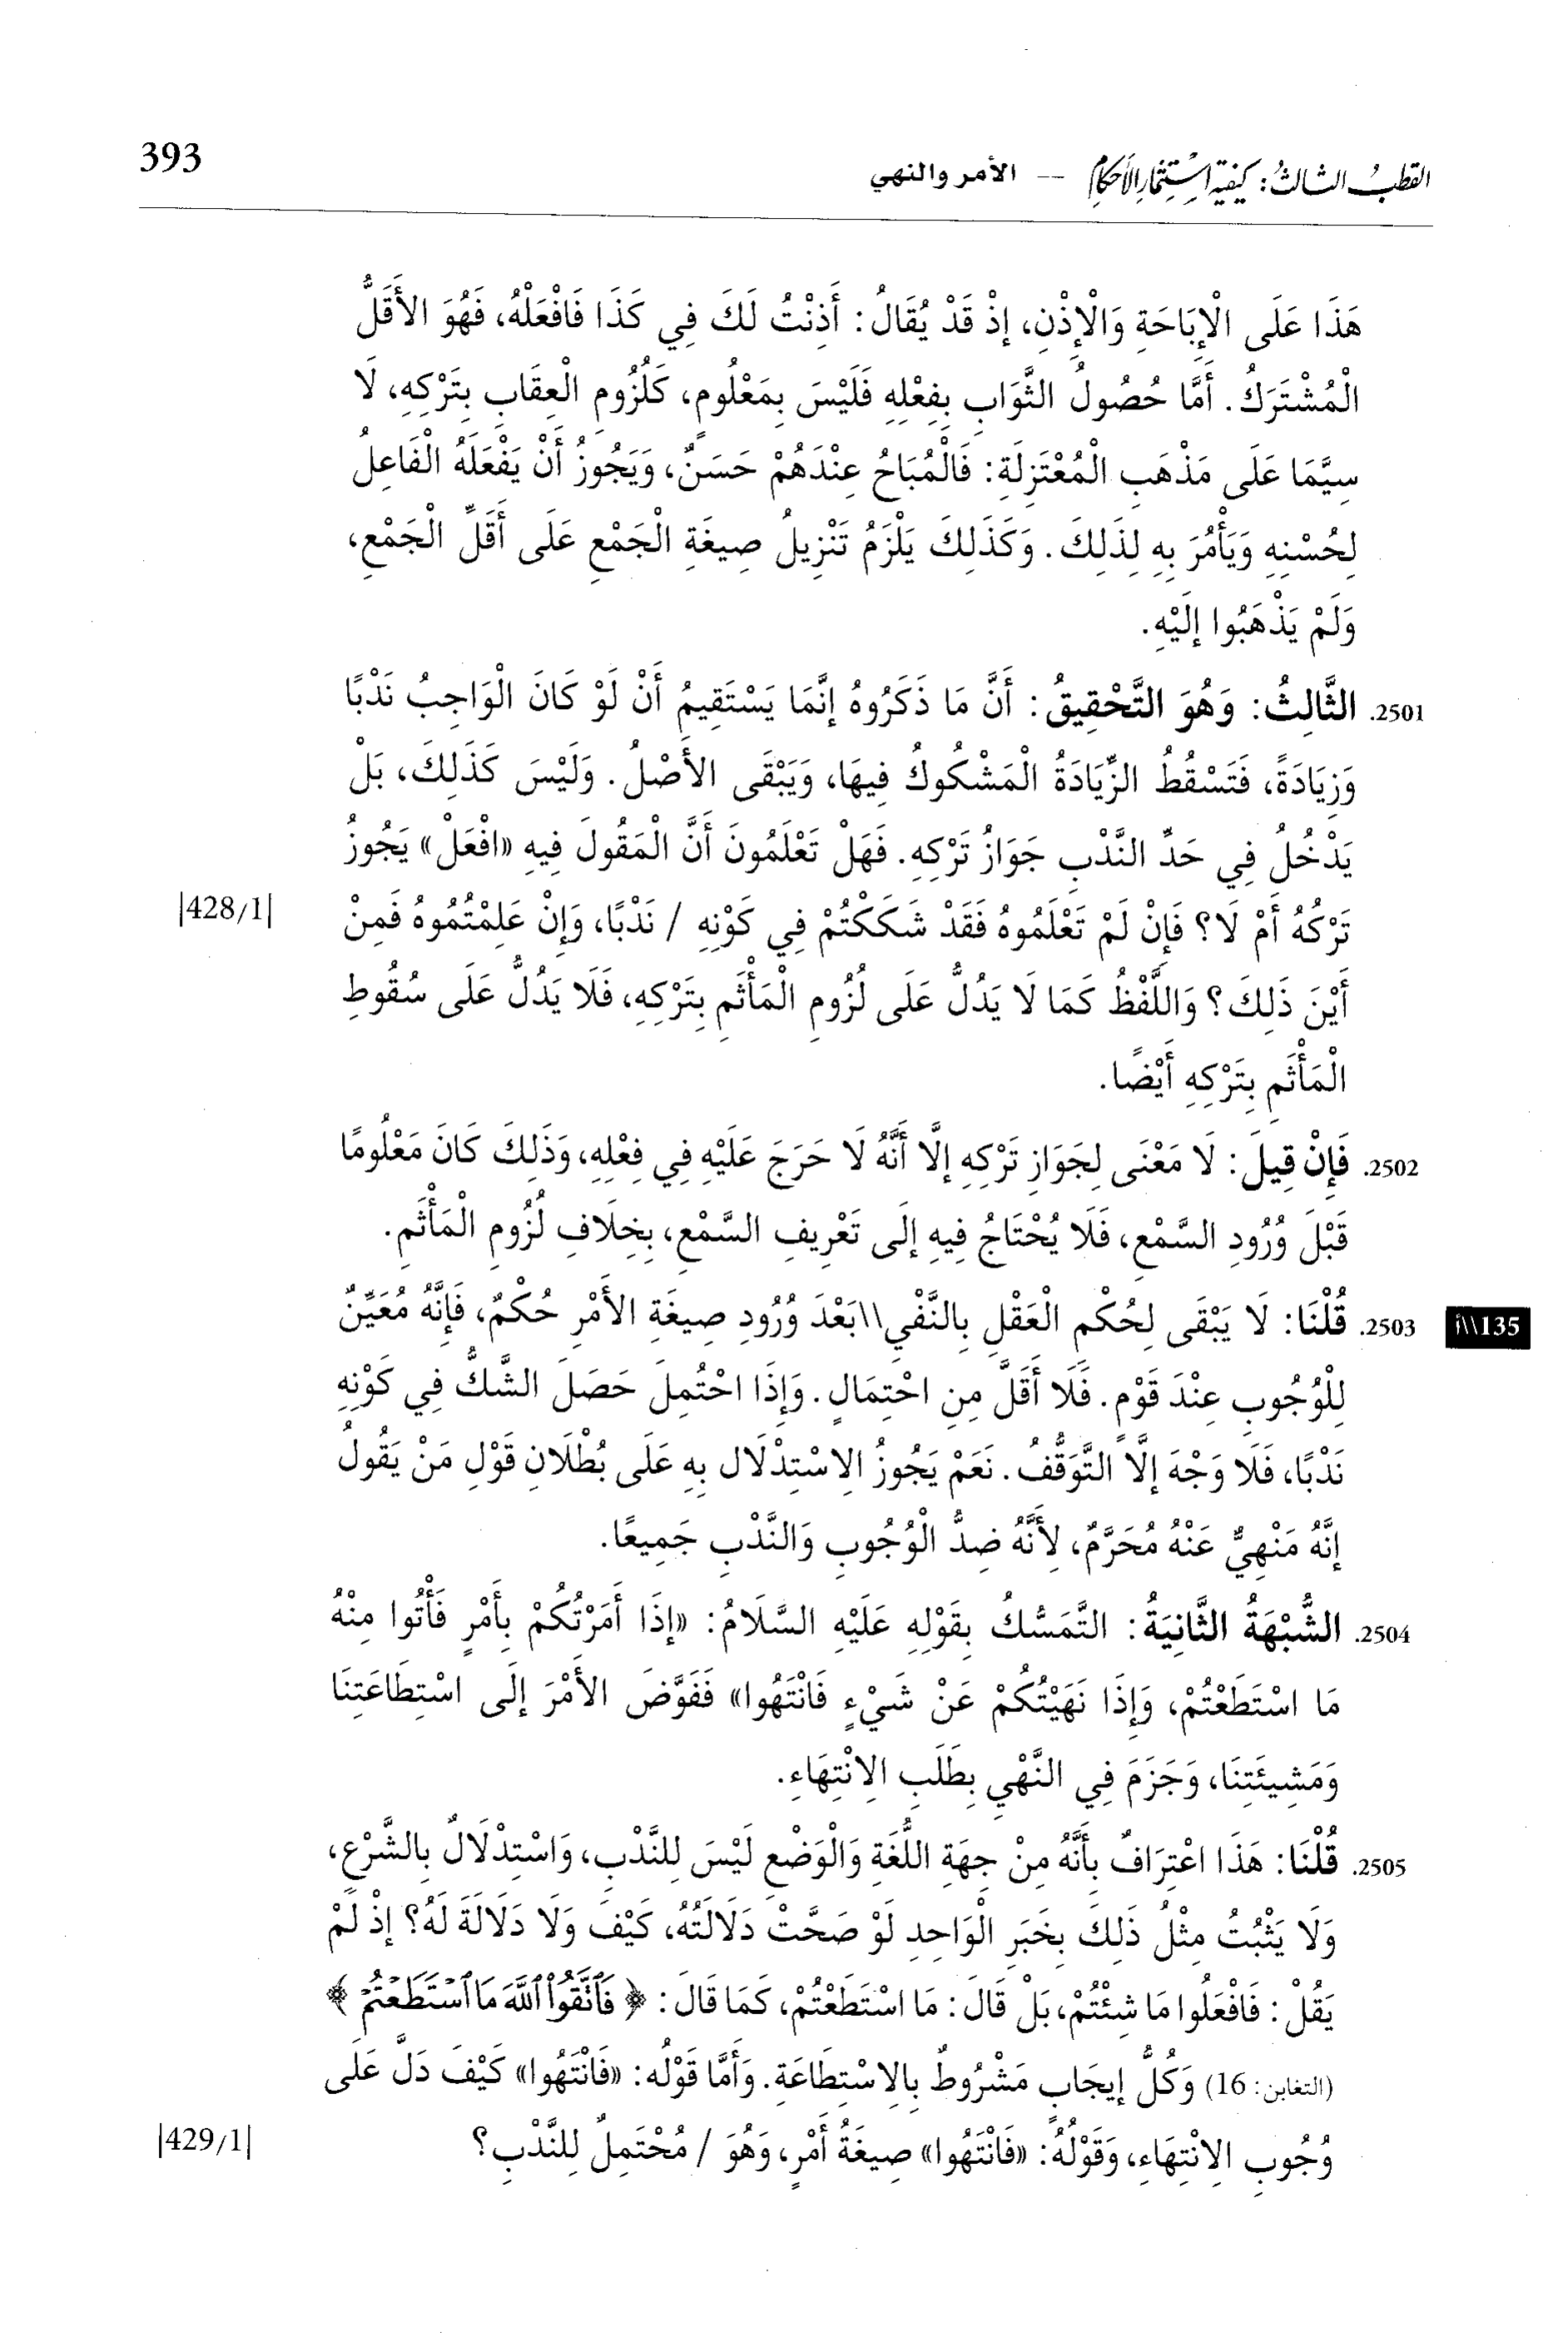 القطب الثالث: كيفية استثمار الأحكام -- الأمر والنهي 393
هَذَا عَلَى الْإِبَاحَةِ وَالْإِذْنِ، إِذْ قَدْ يُقَالُ: أَذِنْتُ لَكَ فِي كَذَا فَافْعَلْهُ، فَهُوَ الأَقَلُّ
الْمُشْتَرَكُ. أَمَّا حُصُولُ الثَّوَابِ بِفِعْلِهِ فَلَيْسَ بِمَعْلُومٍ، كَلُزُومِ الْعِقَابِ بِتَرْكِهِ، لَا
سِيَّمَا عَلَى مَذْهَبِ الْمُعْتَزِلَةِ: فَالْمُبَاحُ عِنْدَهُمْ حَسَنٌ، وَيَجُوزُ أَنْ يَفْعَلَهُ الْفَاعِلُ
لِحُسْنِهِ وَيَأْمُرَ بِهِ لِذَلِكَ. وَكَذَلِكَ يَلْزَمُ تَنْزِيلُ صِيغَةِ الْجَمْعِ عَلَى أَقَلِّ الْجَمْعِ،
وَلَمْ يَذْهَبُوا إِلَيْهِ.
2501. الثَّالِثُ: وَهُوَ التَّحْقِيقُ: أَنَّ مَا ذَكَرُوهُ إِنَّمَا يَسْتَقِيمُ أَنْ لَوْ كَانَ الْوَاجِبُ نَدْبًا
وَزِيَادَةً، فَتَسْقُطُ الزِّيَادَةُ الْمَشْكُوكُ فِيهَا، وَيَبْقَى الأَصْلُ. وَلَيْسَ كَذَلِكَ، بَلْ
يَدْخُلُ فِي حَدِّ النَّدْبِ جَوَازُ تَرْكِهِ. فَهَلْ تَعْلَمُونَ أَنَّ الْمَقُولَ فِيهِ «افْعَلْ» يَجُوزُ
تَرْكُهُ أَمْ لَا؟ فَإِنْ لَمْ تَعْلَمُوهُ فَقَدْ شَكَكْتُمْ فِي كَوْنِهِ / نَدْبًا، وَإِنْ عَلِمْتُمُوهُ فَمِنْ |428/1|
أَيْنَ ذَلِكَ؟ وَاللَّفْظُ كَمَا لَا يَدُلُّ عَلَى لُزُومِ الْمَأْثَمِ بِتَرْكِهِ، فَلَا يَدُلُّ عَلَى سُقُوطِ
الْمَأْثَمِ بِتَرْكِهِ أَيْضًا.
2502. فَإِنْ قِيلَ: لَا مَعْنَى لِجَوَازِ تَرْكِهِ إِلَّا أَنَّهُ لَا حَرَجَ عَلَيْهِ فِي فِعْلِهِ، وَذَلِكَ كَانَ مَعْلُومًا
قَبْلَ وُرُودِ السَّمْعِ، فَلَا يُحْتَاجُ فِيهِ إِلَى تَعْرِيفِ السَّمْعِ، بِخِلَافِ لُزُومِ الْمَأْثَمِ.
135\\أ 2503. قُلْنَا: لَا يَبْقَى لِحُكْمِ الْعَقْلِ بِالنَّفْيِ\\بَعْدَ وُرُودِ صِيغَةِ الأَمْرِ حُكْمٌ، فَإِنَّهُ مُعَيِّنٌ
لِلْوُجُوبِ عِنْدَ قَوْمٍ. فَلَا أَقَلَّ مِنِ احْتِمَالٍ. وَإِذَا احْتُمِلَ حَصَلَ الشَّكُّ فِي كَوْنِهِ
نَدْبًا، فَلَا وَجْهَ إِلَّا التَّوَقُّفُ. نَعَمْ يَجُوزُ الِاسْتِدْلَال بِهِ عَلَى بُطْلَانِ قَوْلِ مَنْ يَقُولُ
إِنَّهُ مَنْهِيٌّ عَنْهُ مُحَرَّمٌ، لِأَنَّهُ ضِدُّ الْوُجُوبِ وَالنَّدْبِ جَمِيعًا.
2504. الشُّبْهَةُ الثَّانِيَةُ: التَّمَسُّكُ بِقَوْلِهِ عَلَيْهِ السَّلَامُ: «إِذَا أَمَرْتُكُمْ بِأَمْرٍ فَأْتُوا مِنْهُ
مَا اسْتَطَعْتُمْ، وَإِذَا نَهَيْتُكُمْ عَنْ شَيْءٍ فَانْتَهُوا» فَفَوَّضَ الأَمْرَ إِلَى اسْتِطَاعَتِنَا
وَمَشِيئَتِنَا، وَجَزَمَ فِي النَّهْيِ بِطَلَبِ الِانْتِهَاءِ.
2505. قُلْنَا: هَذَا اعْتِرَافٌ بِأَنَّهُ مِنْ جِهَةِ اللُّغَةِ وَالْوَضْعِ لَيْسَ لِلنَّدْبِ، وَاسْتِدْلَالٌ بِالشَّرْعِ،
وَلَا يَثْبُتُ مِثْلُ ذَلِكَ بِخَبَرِ الْوَاحِدِ لَوْ صَحَّتْ دَلَالَتُهُ، كَيْفَ وَلَا دَلَالَةَ لَهُ؟ إِذْ لَمْ
يَقُلْ: فَافْعَلُوا مَا شِئْتُمْ، بَلْ قَالَ: مَا اسْتَطَعْتُمْ، كَمَا قَالَ: ﴿فَٱتَّقُوا۟ ٱللَّهَ مَا ٱسْتَطَعْتُمْ﴾
(التغابن: 16) وَكُلُّ إِيجَابٍ مَشْرُوطٌ بِالِاسْتِطَاعَةِ. وَأَمَّا قَوْلُه: «فَانْتَهُوا» كَيْفَ دَلَّ عَلَى
وُجُوبِ الِانْتِهَاءِ، وَقَوْلُهُ: «فَانْتَهُوا» صِيغَةُ أَمْرٍ، وَهُوَ / مُحْتَمِلٌ لِلنَّدْبِ؟ |429/1|